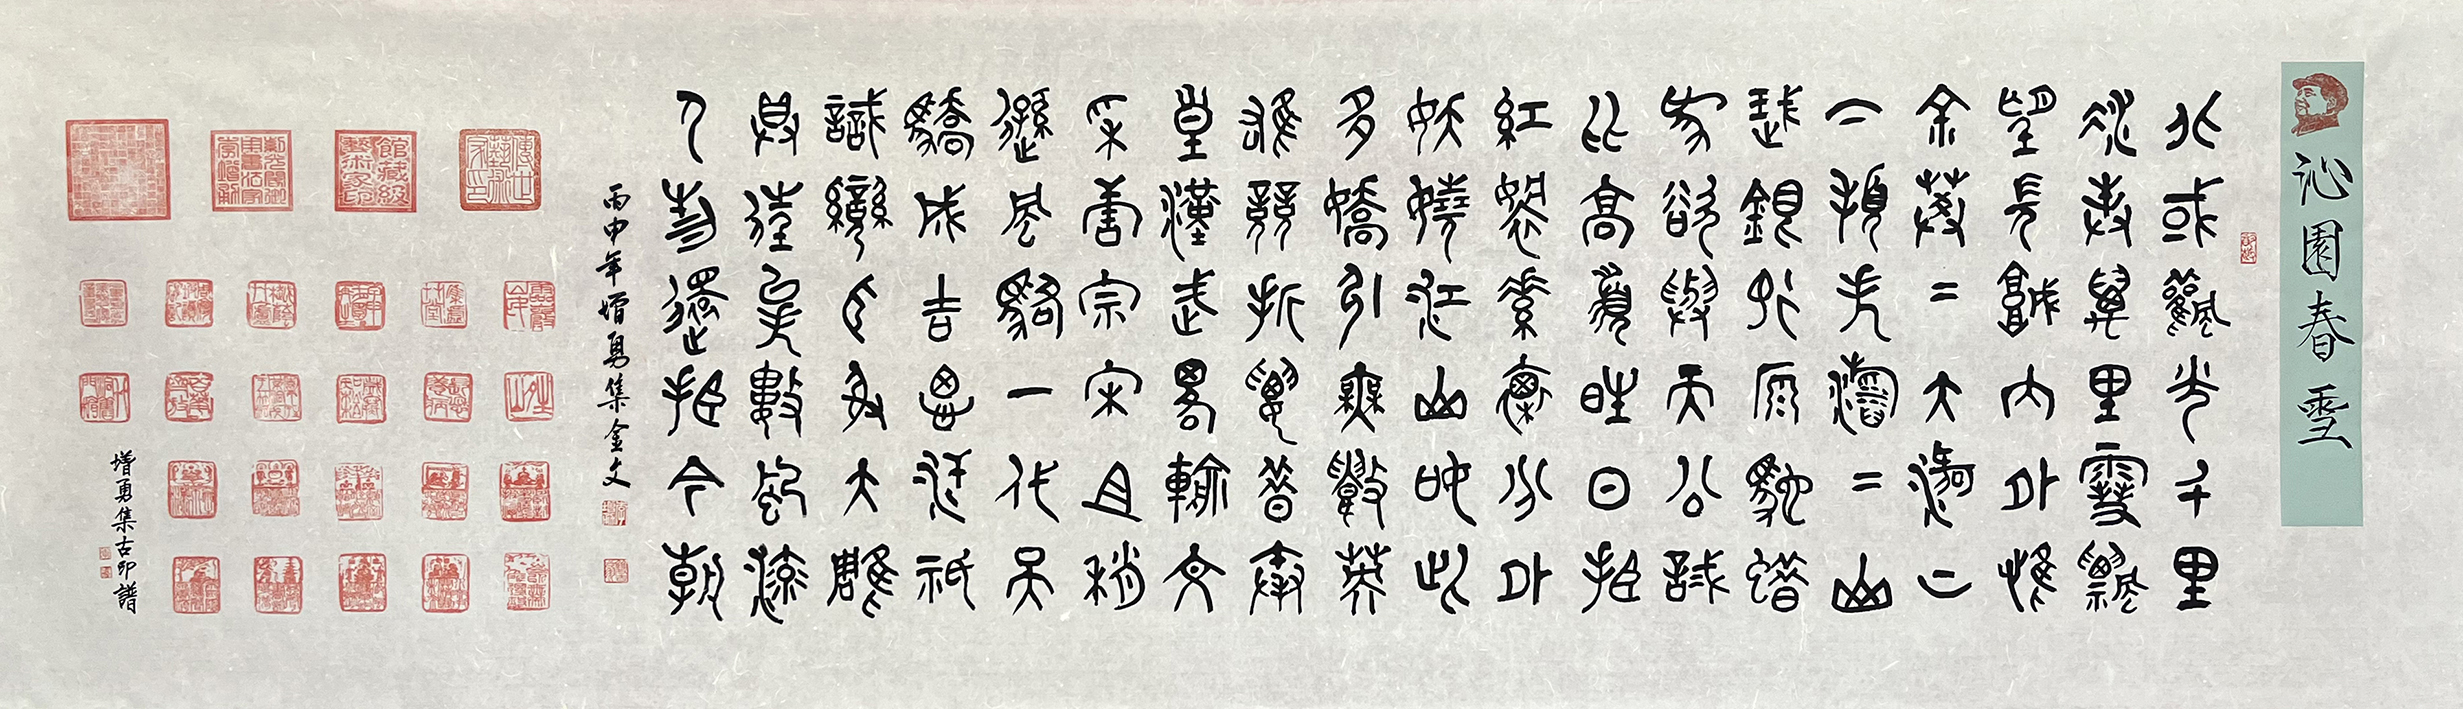 沁園春雪
北國風光千里
冰封萬里雪飄
望長城内外惟
余莽=大河上
下頓失滔=山
舞銀蛇原馳蠟
象欲與天公試
比高須晴日看
紅裝素裹分外
妖嬈江山如此
多嬌引無數英
雄競折腰惜秦
皇漢武略輸文
采唐宗宋祖稍
遜風騷一代天
驕成吉思汗祇
識彎弓射大雕
俱往矣數風流
人物還看今朝
丙申年增勇集金文
傳世藝術家印
館藏級藝術家印
增勇集古印譜